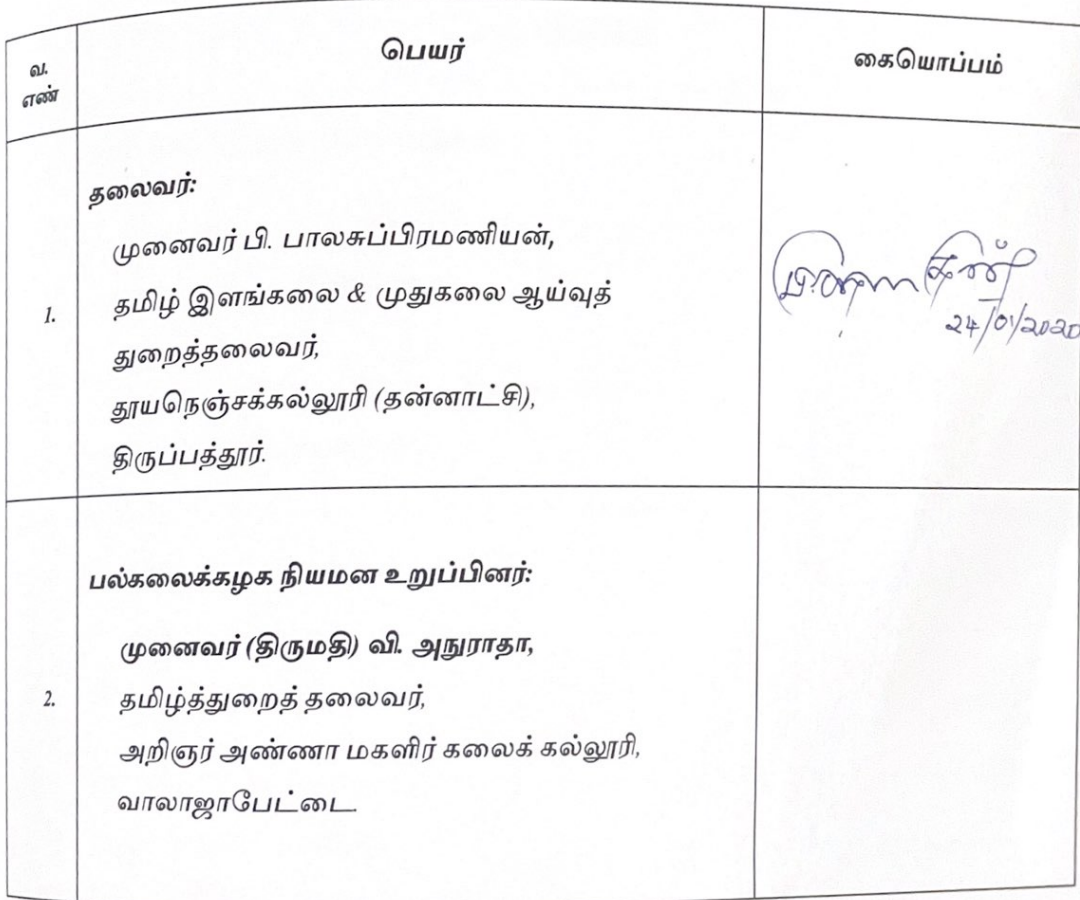 வ.
எண்
பெயர்
கையொப்பம்
1.
தலைவர்:
முனைவர் பி. பாலசுப்பிரமணியன்,
தமிழ் இளங்கலை & முதுகலை ஆய்வுத்
துறைத்தலைவர்,
தூயநெஞ்சக்கல்லூரி (தன்னாட்சி),
திருப்பத்தூர்.
24/01/2020
2.
பல்கலைக்கழக நியமன உறுப்பினர்:
முனைவர் (திருமதி) வி. அநுராதா,
தமிழ்த்துறைத் தலைவர்,
அறிஞர் அண்ணா மகளிர் கலைக் கல்லூரி,
வாலாஜாபேட்டை.